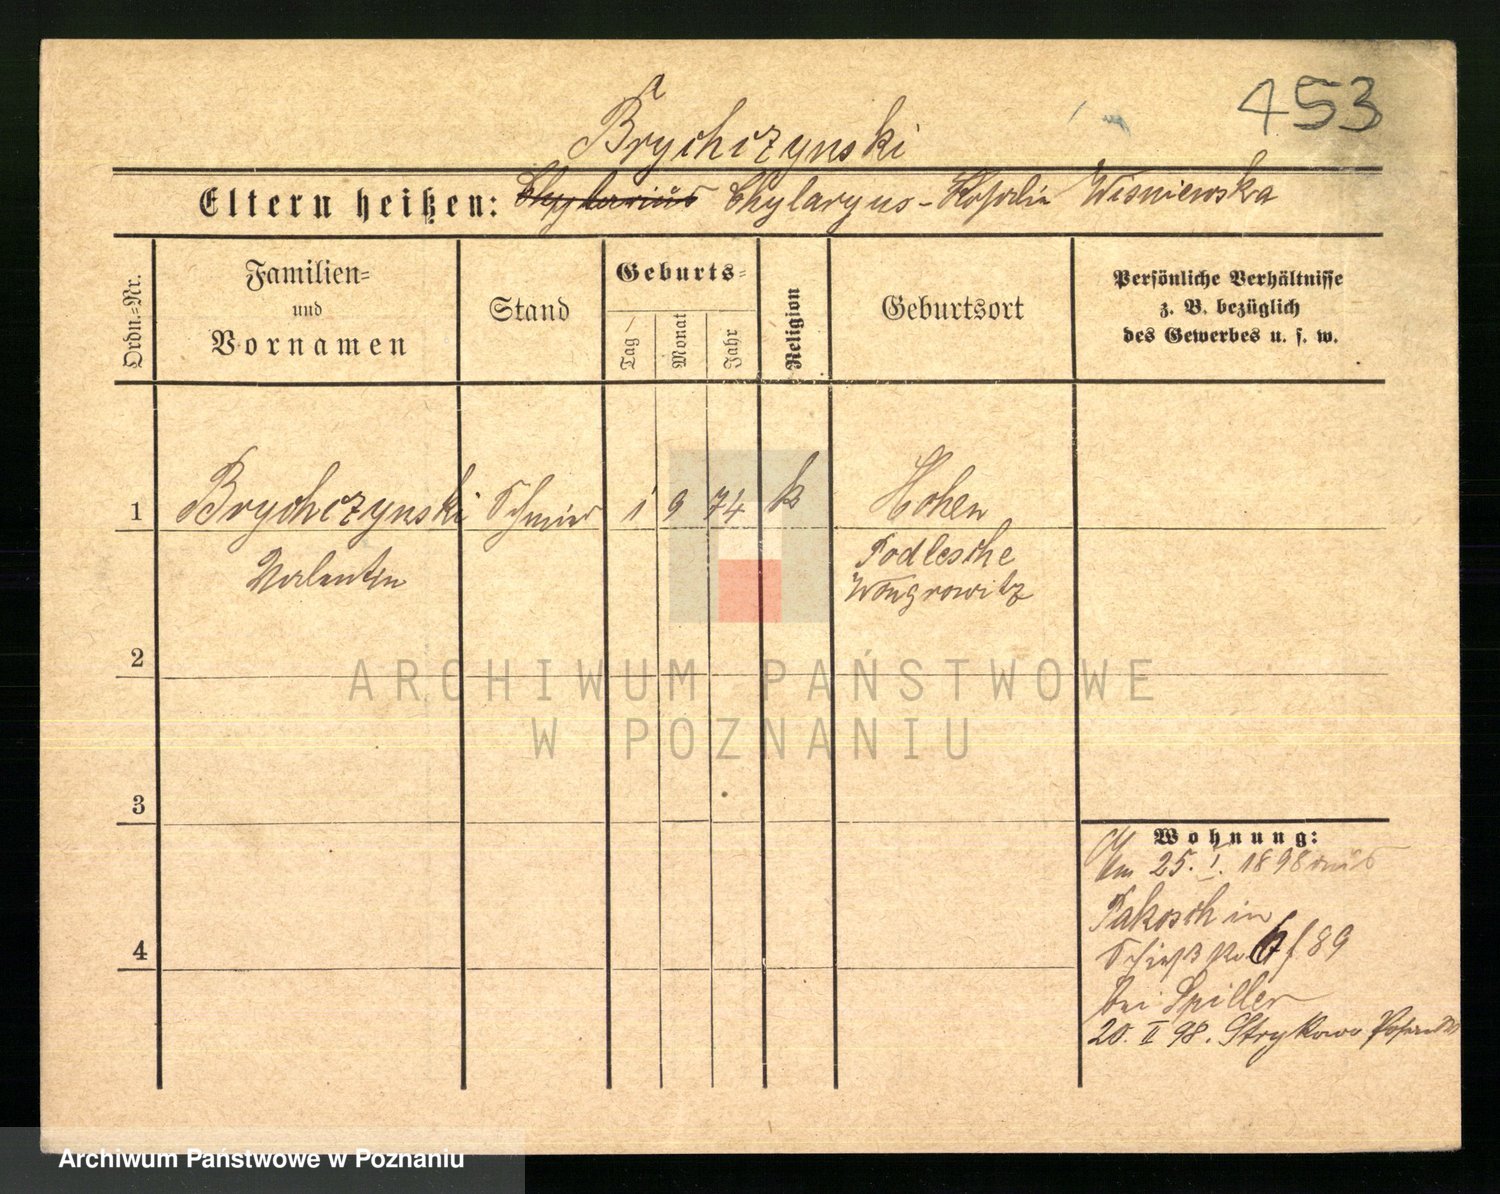 453
Brychczynski
Eltern heißen: Chylarius Chylaryus - Rosalie Wisniewska
Ordn.-Nr.
Familien-
und
Vornamen
Stand
Geburts-
Tag
Monat
Jahr
Religion
Geburtsort
Persönliche Verhältnisse
z. B. bezüglich
des Gewerbes u. s. w.
1
Brychczynski Schmied 1 9 74 k Hohen
Valentin
Podlesche
Wongrowitz
2
ARCHIWUM PAŃSTWOWE
W POZNANIU
3
Wohnung:
Am 25. I. 1898 aus
Pakosch in
89
bei Spiller
20. II 98. Strykowo
4
Archiwum Państwowe w Poznaniu